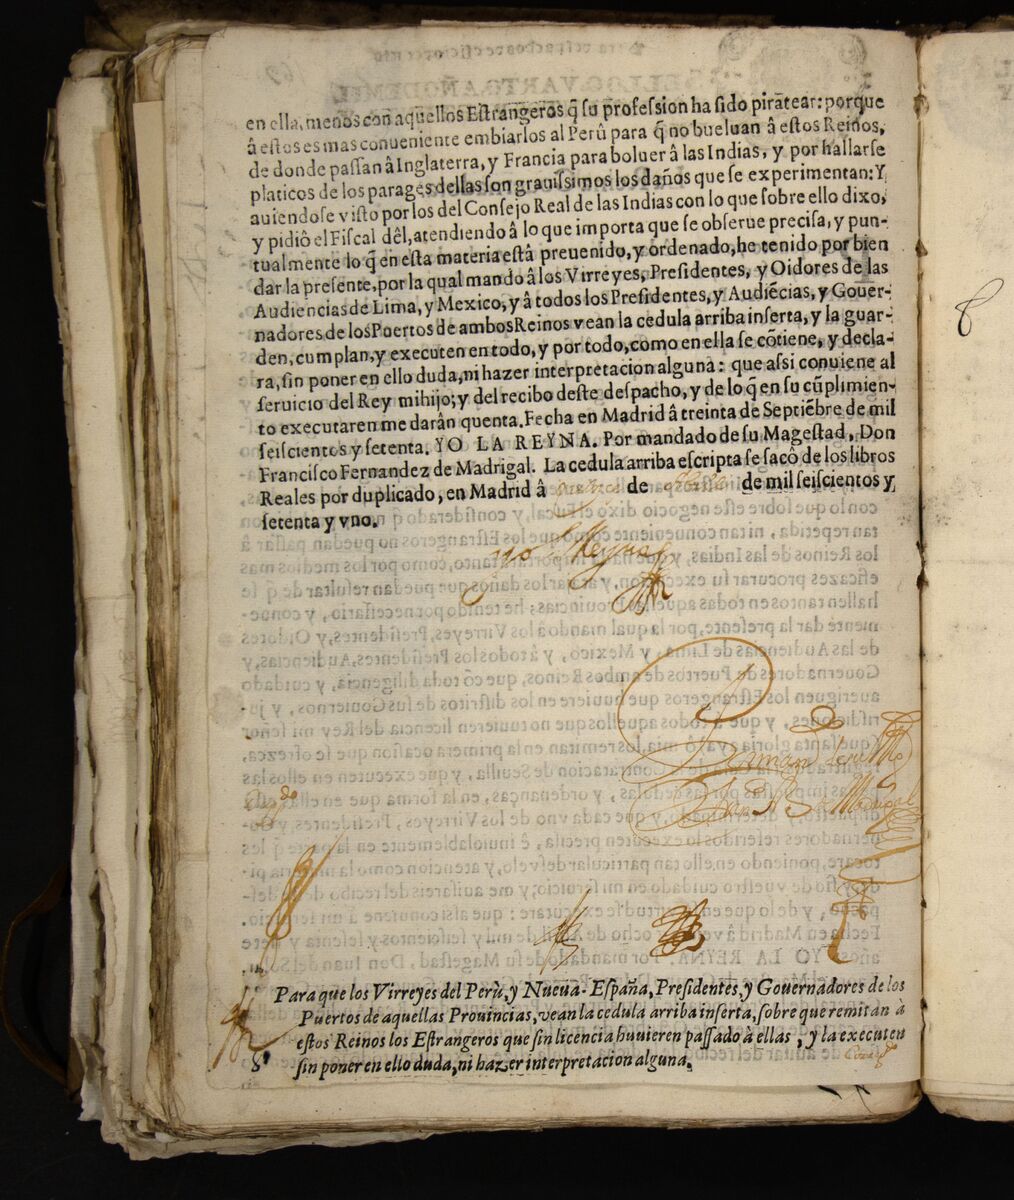 en ella, menos con aquellos Estrangeros q̃ su profession ha sido piratear: porque
â estos es mas conueniente embiarlos al Perû para q̃ no bueluan â estos Reinos,
de donde passan â Inglaterra, y Francia para boluer â las Indias, y por hallarse
platicos de los parages dellas son grauissimos los daños que se experimentan: Y
auiendose visto por los del Consejo Real de las Indias con lo que sobre ello dixo,
y pidiô el Fiscal dêl, atendiendo â lo que importa que se obserue precisa, y pun-
tualmente lo q̃ en esta materia estâ preuenido, y ordenado, he tenido por bien
dar la presente, por la qual mando â los Virreyes, Presidentes, y Oidores de las
Audiencias de Lima, y Mexico, y â todos los Presidentes, y Audiẽcias, y Gouer-
nadores de los Puertos de ambos Reinos vean la cedula arriba inserta, y la guar-
den, cumplan, y executen en todo, y por todo, como en ella se cõtiene, y decla-
ra, sin poner en ello duda, ni hazer interpretacion alguna: que assi conuiene al
seruicio del Rey mi hijo; y del recibo deste despacho, y de lo q̃ en su cũplimien-
to executaren me darân quenta. Fecha en Madrid â treinta de Septiẽbre de mil
seiscientos y setenta. YO LA REYNA. Por mandado de su Magestad, Don
Francisco Fernandez de Madrigal. La cedula arriba escripta se sacô de los libros
Reales por duplicado, en Madrid â de de mil seiscientos y
setenta y vno.
yo la Reyna
Para que los Virreyes del Perù, y Nueva-España, Presidentes, y Gouernadores de los
Puertos de aquellas Prouincias, vean la cedula arriba inserta, sobre que remitan à
estos Reinos los Estrangeros que sin licencia huuieren passado à ellas, y la executen
sin poner en ello duda, ni hazer interpretacion alguna.